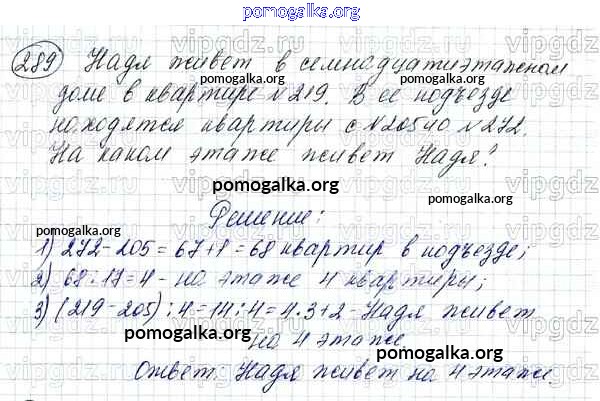 pomogalka.org
289 Надя живет в семнадцатиэтажном
pomogalka.org
доме в квартире №219. В ее подъезде
находятся квартиры с №205 по №272.
На каком этаже живет Надя?
pomogalka.org
Решение:
pomogalka.org
1) 272-205=67+1=68 квартир в подъезде;
2) 68:17=4 - на этаже 4 квартиры;
3) (219-205):4=14:4=4·3+2-Надя живет
на 4 этаже.
pomogalka.org
Ответ: Надя живет на 4 этаже.
pomogalka.org